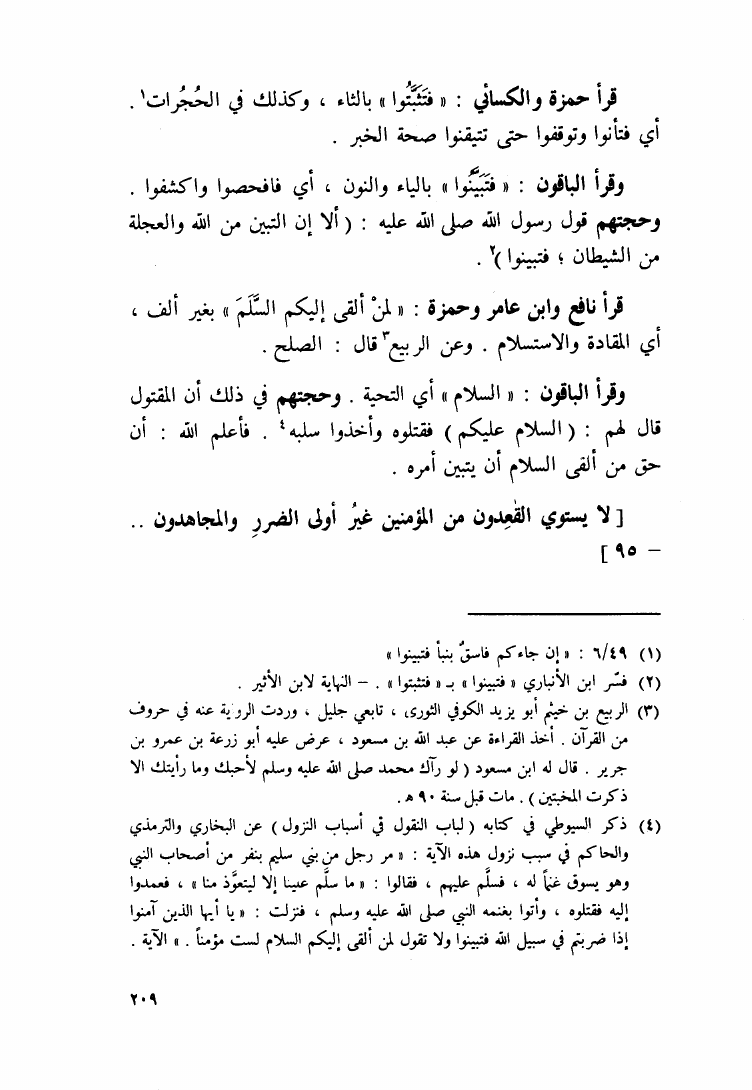 قرأ حمزة والكسائي : « فَتَثَبَّتُوا » بالثاء ، وكذلك في الحُجُرات١ .
أي فتأنوا وتوقفوا حتى تتيقنوا صحة الخبر .
وقرأ الباقون : « فَتَبَيَّنُوا » بالياء والنون ، أي فافحصوا واكشفوا .
وحجتهم قول رسول الله صلى الله عليه : ( ألا إن التبين من الله والعجلة
من الشيطان ؛ فتبينوا )٢ .
قرأ نافع وابن عامر وحمزة : « لمنْ ألقى إليكم السَّلَمَ » بغير ألف ،
أي المقادة والاستسلام . وعن الربيع٣ قال : الصلح .
وقرأ الباقون : « السلام » أي التحية . وحجتهم في ذلك أن المقتول
قال لهم : ( السلام عليكم ) فقتلوه وأخذوا سلبه٤ . فأعلم الله : أن
حق من ألقى السلام أن يتبين أمره .
[ لا يستوي القٰعِدون من المؤمنين غيرُ أولى الضررِ والمجاهدون ..
– ٩٥ ]
(١) ٦/٤٩ : « إن جاءكم فاسقٌ بنبأ فتبينوا »
(٢) فسّر ابن الأنباري « فتبينوا » بـ « فتثبتوا » . – النهاية لابن الأثير .
(٣) الربيع بن خيثم أبو يزيد الكوفي الثورى ، تابعي جليل ، وردت الرواية عنه في حروف
من القرآن . أخذ القراءة عن عبد الله بن مسعود ، عرض عليه أبو زرعة بن عمرو بن
جرير . قال له ابن مسعود ( لو رآك محمد صلى الله عليه وسلم لأحبك وما رأيتك الا
ذكرت المخبتين ) . مات قبل سنة ٩٠ ه .
(٤) ذكر السيوطي في كتابه ( لباب النقول في أسباب النزول ) عن البخاري والترمذي
والحاكم في سبب نزول هذه الآية : « مر رجل من بني سليم بنفر من أصحاب النبي
وهو يسوق غنماً له ، فسلَّم عليهم ، فقالوا : « ما سلَّم علينا إلا ليتعوَّذ منا » ، فعمدوا
إليه فقتلوه ، وأتوا بغنمه النبي صلى الله عليه وسلم ، فنزلت : « يا أيها الذين آمنوا
إذا ضربتم في سبيل الله فتبينوا ولا تقول لمن ألقى إليكم السلام لست مؤمناً . » الآية .
٢٠٩